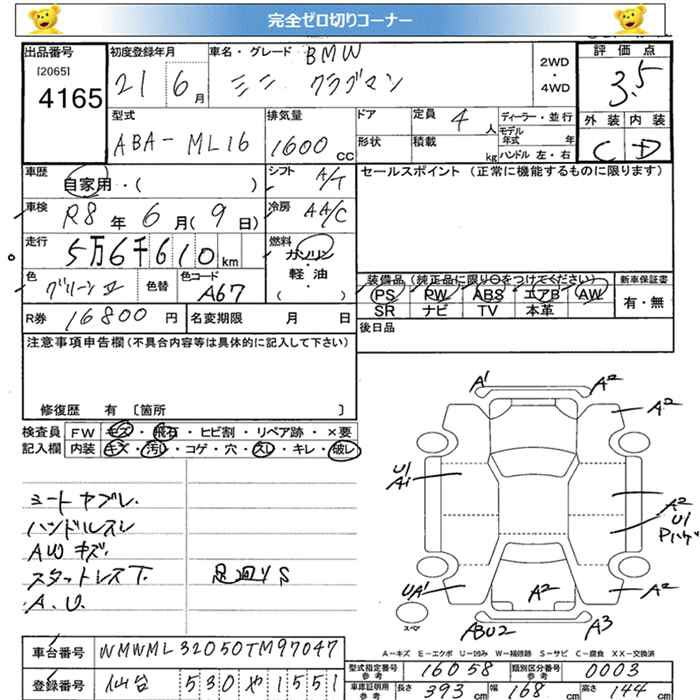 完全ゼロ切りコーナー
出品番号 初度登録年月 車名・グレード BMW 2WD・4WD 評価点
[2065] 4165 21 6月 ミニ クラブマン 3.5
型式 排気量 ドア 定員 4人 ディーラー・並行 外装 内装
ABA-ML16 1600cc 形状 積載 kg モデル年式 年 ハンドル 左・右 C D
車歴 自家用・( ) シフト A/T セールスポイント (正常に機能するものに限ります)
車検 R8年6月(9日) 冷房 AA/C
走行 5万6千610km 燃料 ガソリン 軽・油 ( ・ )
色 グリーンII 色替 色コード A67
装備品 (純正品に限り○をつけてください) 新車保証書
PS PW ABS エアB AW 有・無
SR ナビ TV 本革
R券 16800円 名変期限 月 日 後日品
注意事項申告欄(不具合内容等は具体的に記入して下さい)
修復歴 有 [箇所 ]
検査員 FW キズ・飛石・ヒビ割・リペア跡・×要
記入欄 内装 キズ・汚レ・コゲ・穴・スレ・キレ・破レ
シートヤブレ.
ハンドルスレ
AWキズ.
スタットレス下. 足廻りS
A.U.
A1 A2
A2
U1 A1
A2 U1 Pハゲ
UA1 A2 A2
スペア ABU2 A3
A-キズ E-エクボ U-凹み W-補修跡 S-サビ C-腐食 XX-交換済
車台番号 WMWML32050TM97047 型式指定番号 参考 16058 類別区分番号 参考 0003
登録番号 仙台 530 や 1551 車庫証明用 参考 長さ 393cm 幅 168cm 高さ 144cm